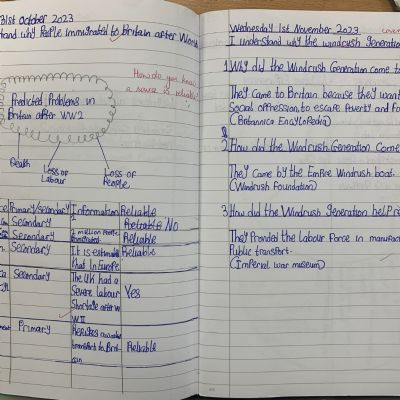 31st October 2023
tand why People immigrated to Britain after World
How do you know
a source is reliable?
Predicted Problems in
Britain after WW2
Death
Loss of
Labour
Loss of
People
ce Primary/secondary Information Reliable
Secondary Reliable No
Secondary 2 million People Reliable
Secondary It is estimated Reliable
that in Europe
Secondary The UK had a
Severe labour Yes
Shortage after w
WII
Primary
transport to Brit- Reliable
ain
Wednesday 1st November 2023
I understand why the windrush generation
1 Why did the Windrush Generation come to
They came to Britain because they want
Social oppression to escape Poverty and
(Britannica Encyclopedia)
2 How did the Windrush Generation come
They came by the Empire Windrush boat.
(Windrush Foundation)
3 How did the Windrush generation help
They Provided the Labour Force in manufac
Public transport.
(Imperial war museum)